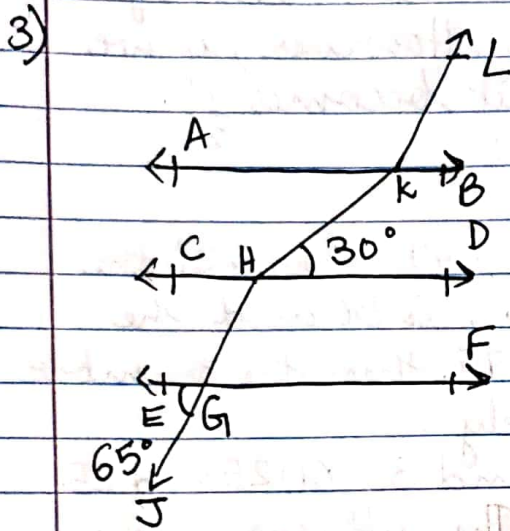 3)
L
A
K B
C H 30° D
F
E G
65°
J